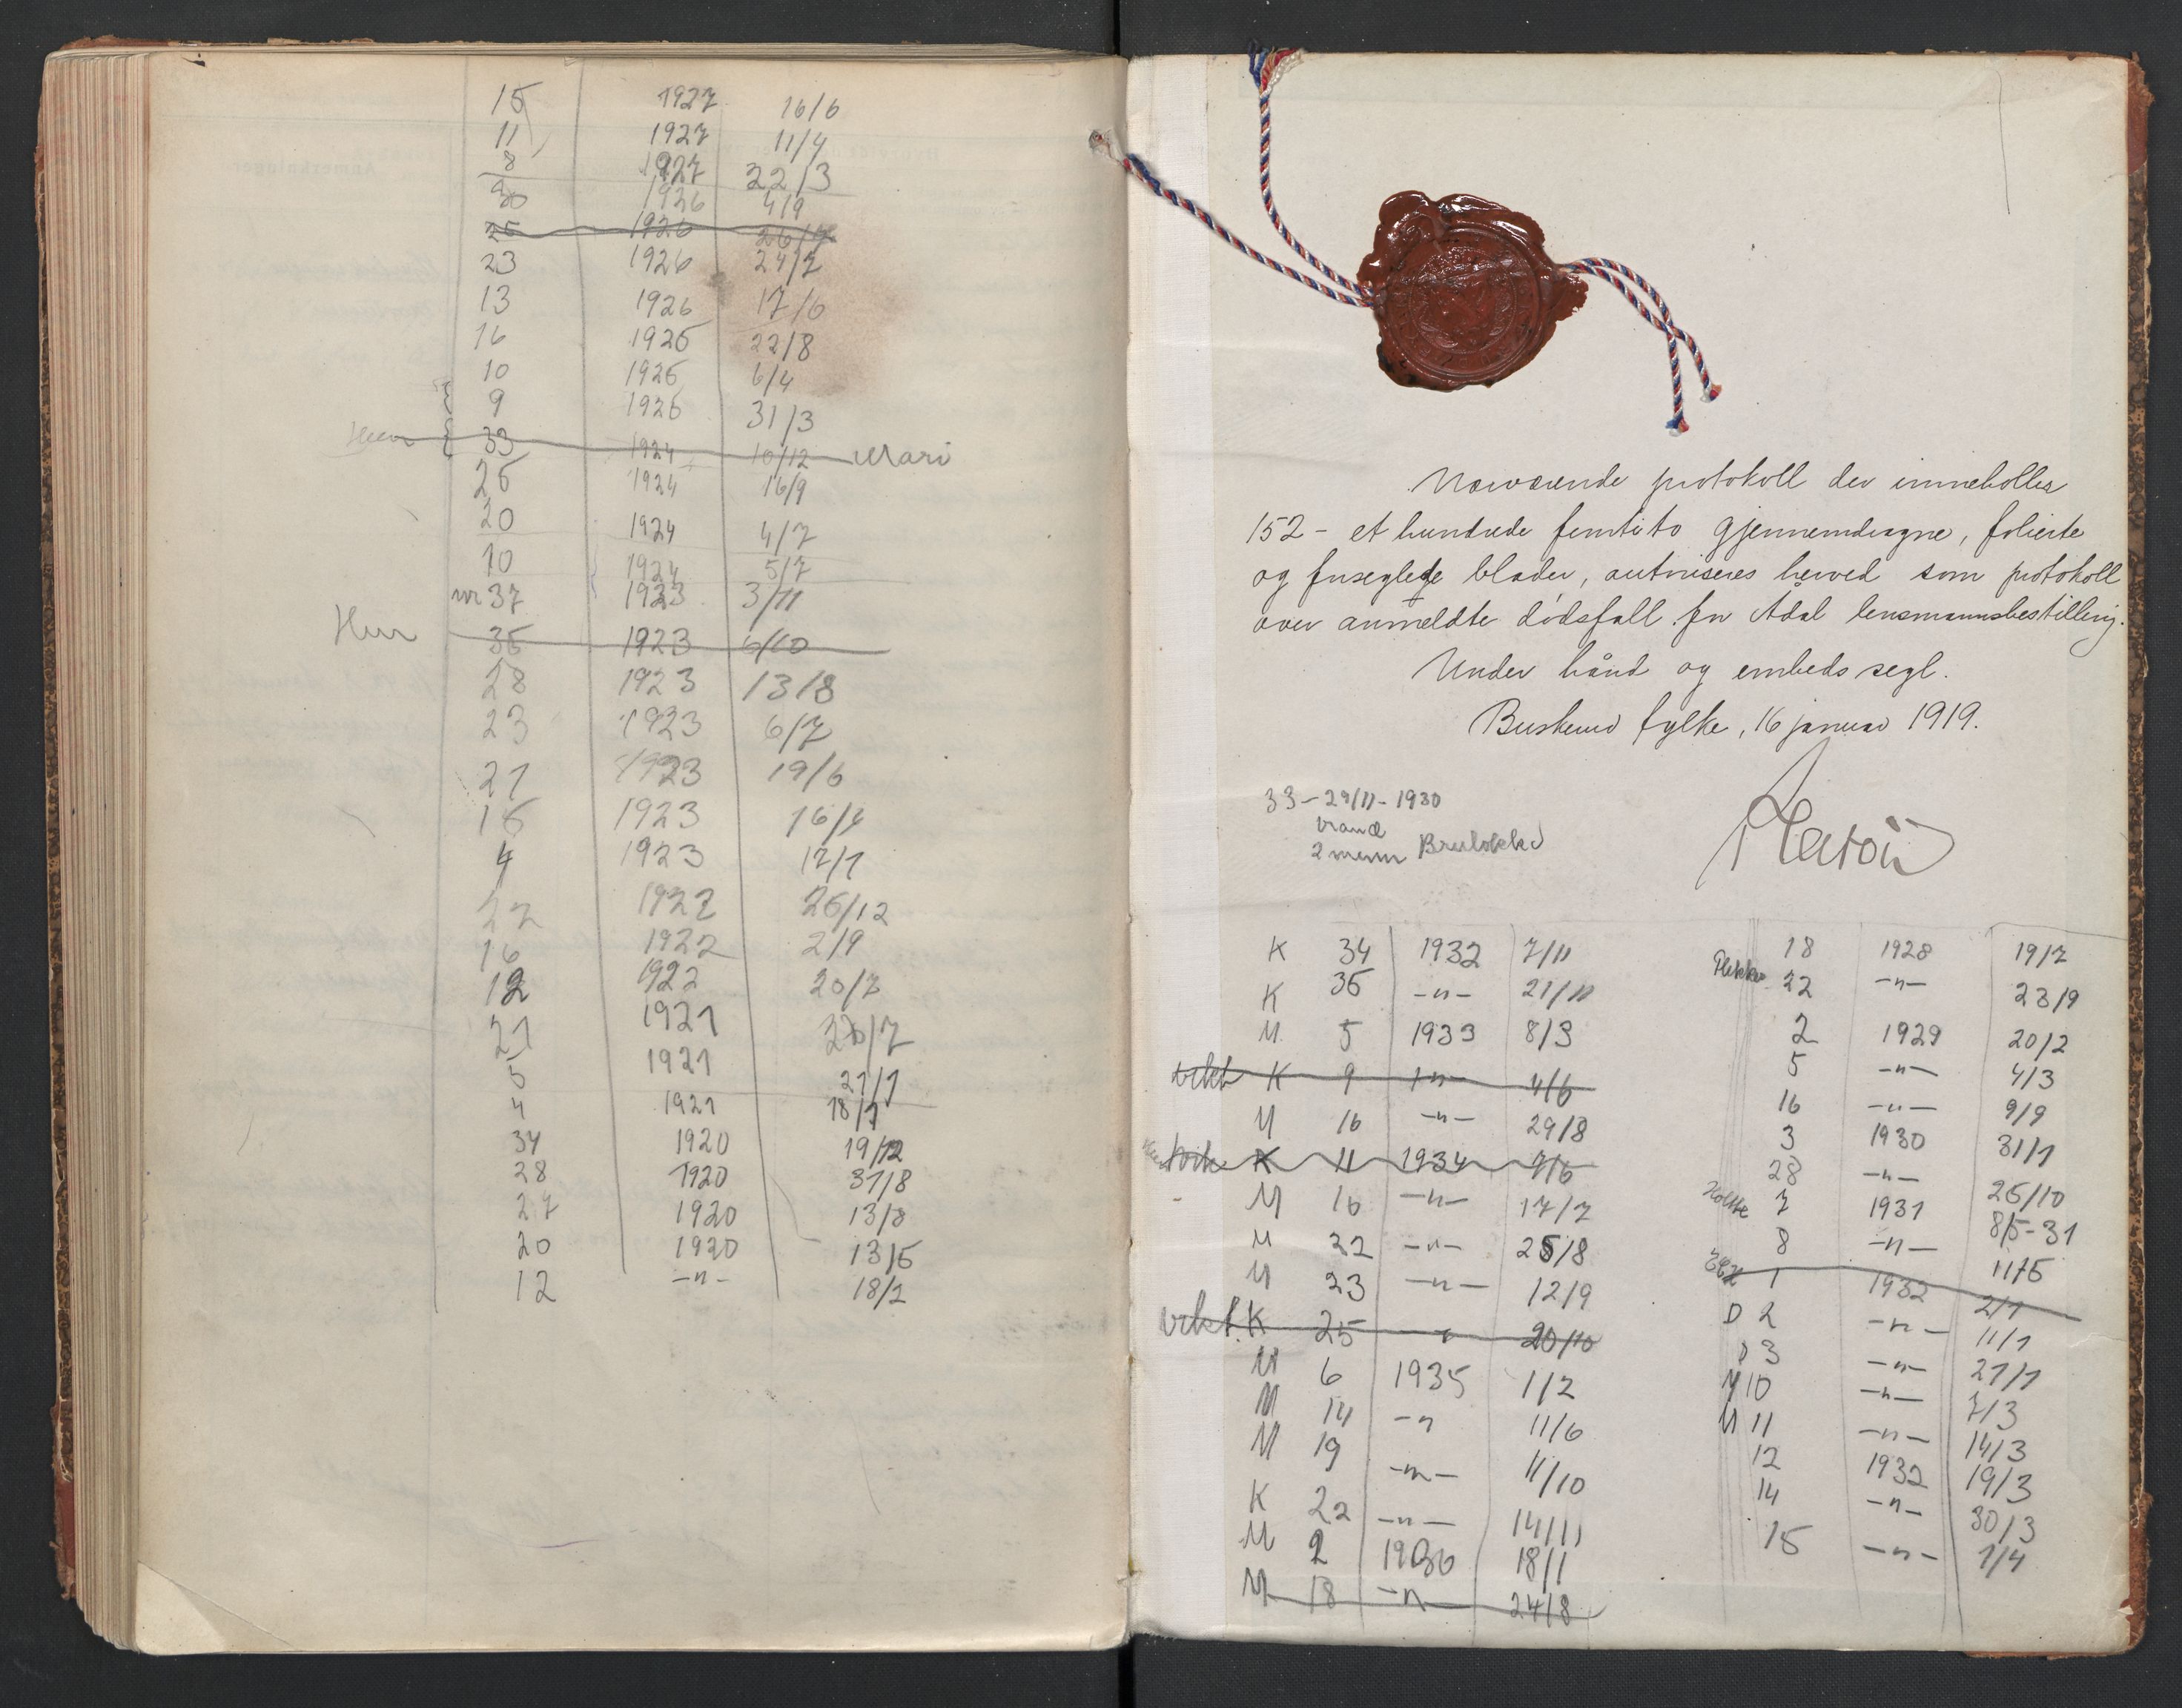 15 1927 16/6
11 1927 11/4
8 1927 22/3
30 1926 4/9
25 1926 26/7
23 1926 24/7
13 1926 17/6
16 1925 22/8
10 1925 6/4
9 1925 31/3
33 1924 10/12 Mari
25 1924 16/9
20 1924 4/7
10 1924 5/7
nr 37 1923 3/11
35 1923 6/10
28 1923 13/8
23 1923 6/7
21 1923 19/6
15 1923 16/4
4 1923 17/1
22 1922 25/12
16 1922 2/9
12 1922 20/7
21 1921 /7
5 1921 21/1
4 1921 18/1
34 1920 19/12
28 1920 31/8
27 1920 13/8
20 1920 13/5
12 -"- 18/2
Nærværende protokoll der inneholler
152 - et hundrede femtito gjennemdragne, folierte
og forseglede blader, autoriseres herved som protokoll
over anmeldte dødsfall for Ådal lensmannsbestilling.
Under hånd og embeds segl.
Buskerud fylke, 16 januar 1919.
33 - 29/11 - 1930
2 menn
K 34 1932 7/11
K 35 -"- 21/11
M 5 1933 8/3
vekt K 9 -"- 4/6
M 16 -"- 29/8
K 11 1934 7/6
M 16 -"- 17/7
M 22 -"- 25/8
M 23 -"- 12/9
vekt. K 25 " 20/10
M 6 1935 1/2
M 14 -" 11/6
M 19 -"- 11/10
K 22 -"- 14/11
M 2 1936 18/1
M 18 -"- 24/8
18 1928 19/7
22 -"- 23/9
2 1929 20/2
5 -"- 4/3
16 -"- 9/9
3 1930 31/1
28 -"- 25/10
7 1931 8/5-31
8 -"- 11/5
1 1932 2/1
D 2 -"- 11/1
D 3 -"- 21/1
M 10 -"- 7/3
M 11 -"- 14/3
12 1932 19/3
14 -"- 30/3
15 -"- 1/4